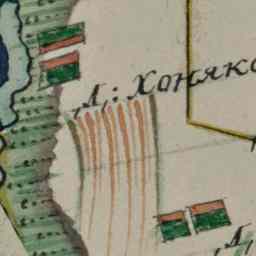 Д: Хоняко
Д,